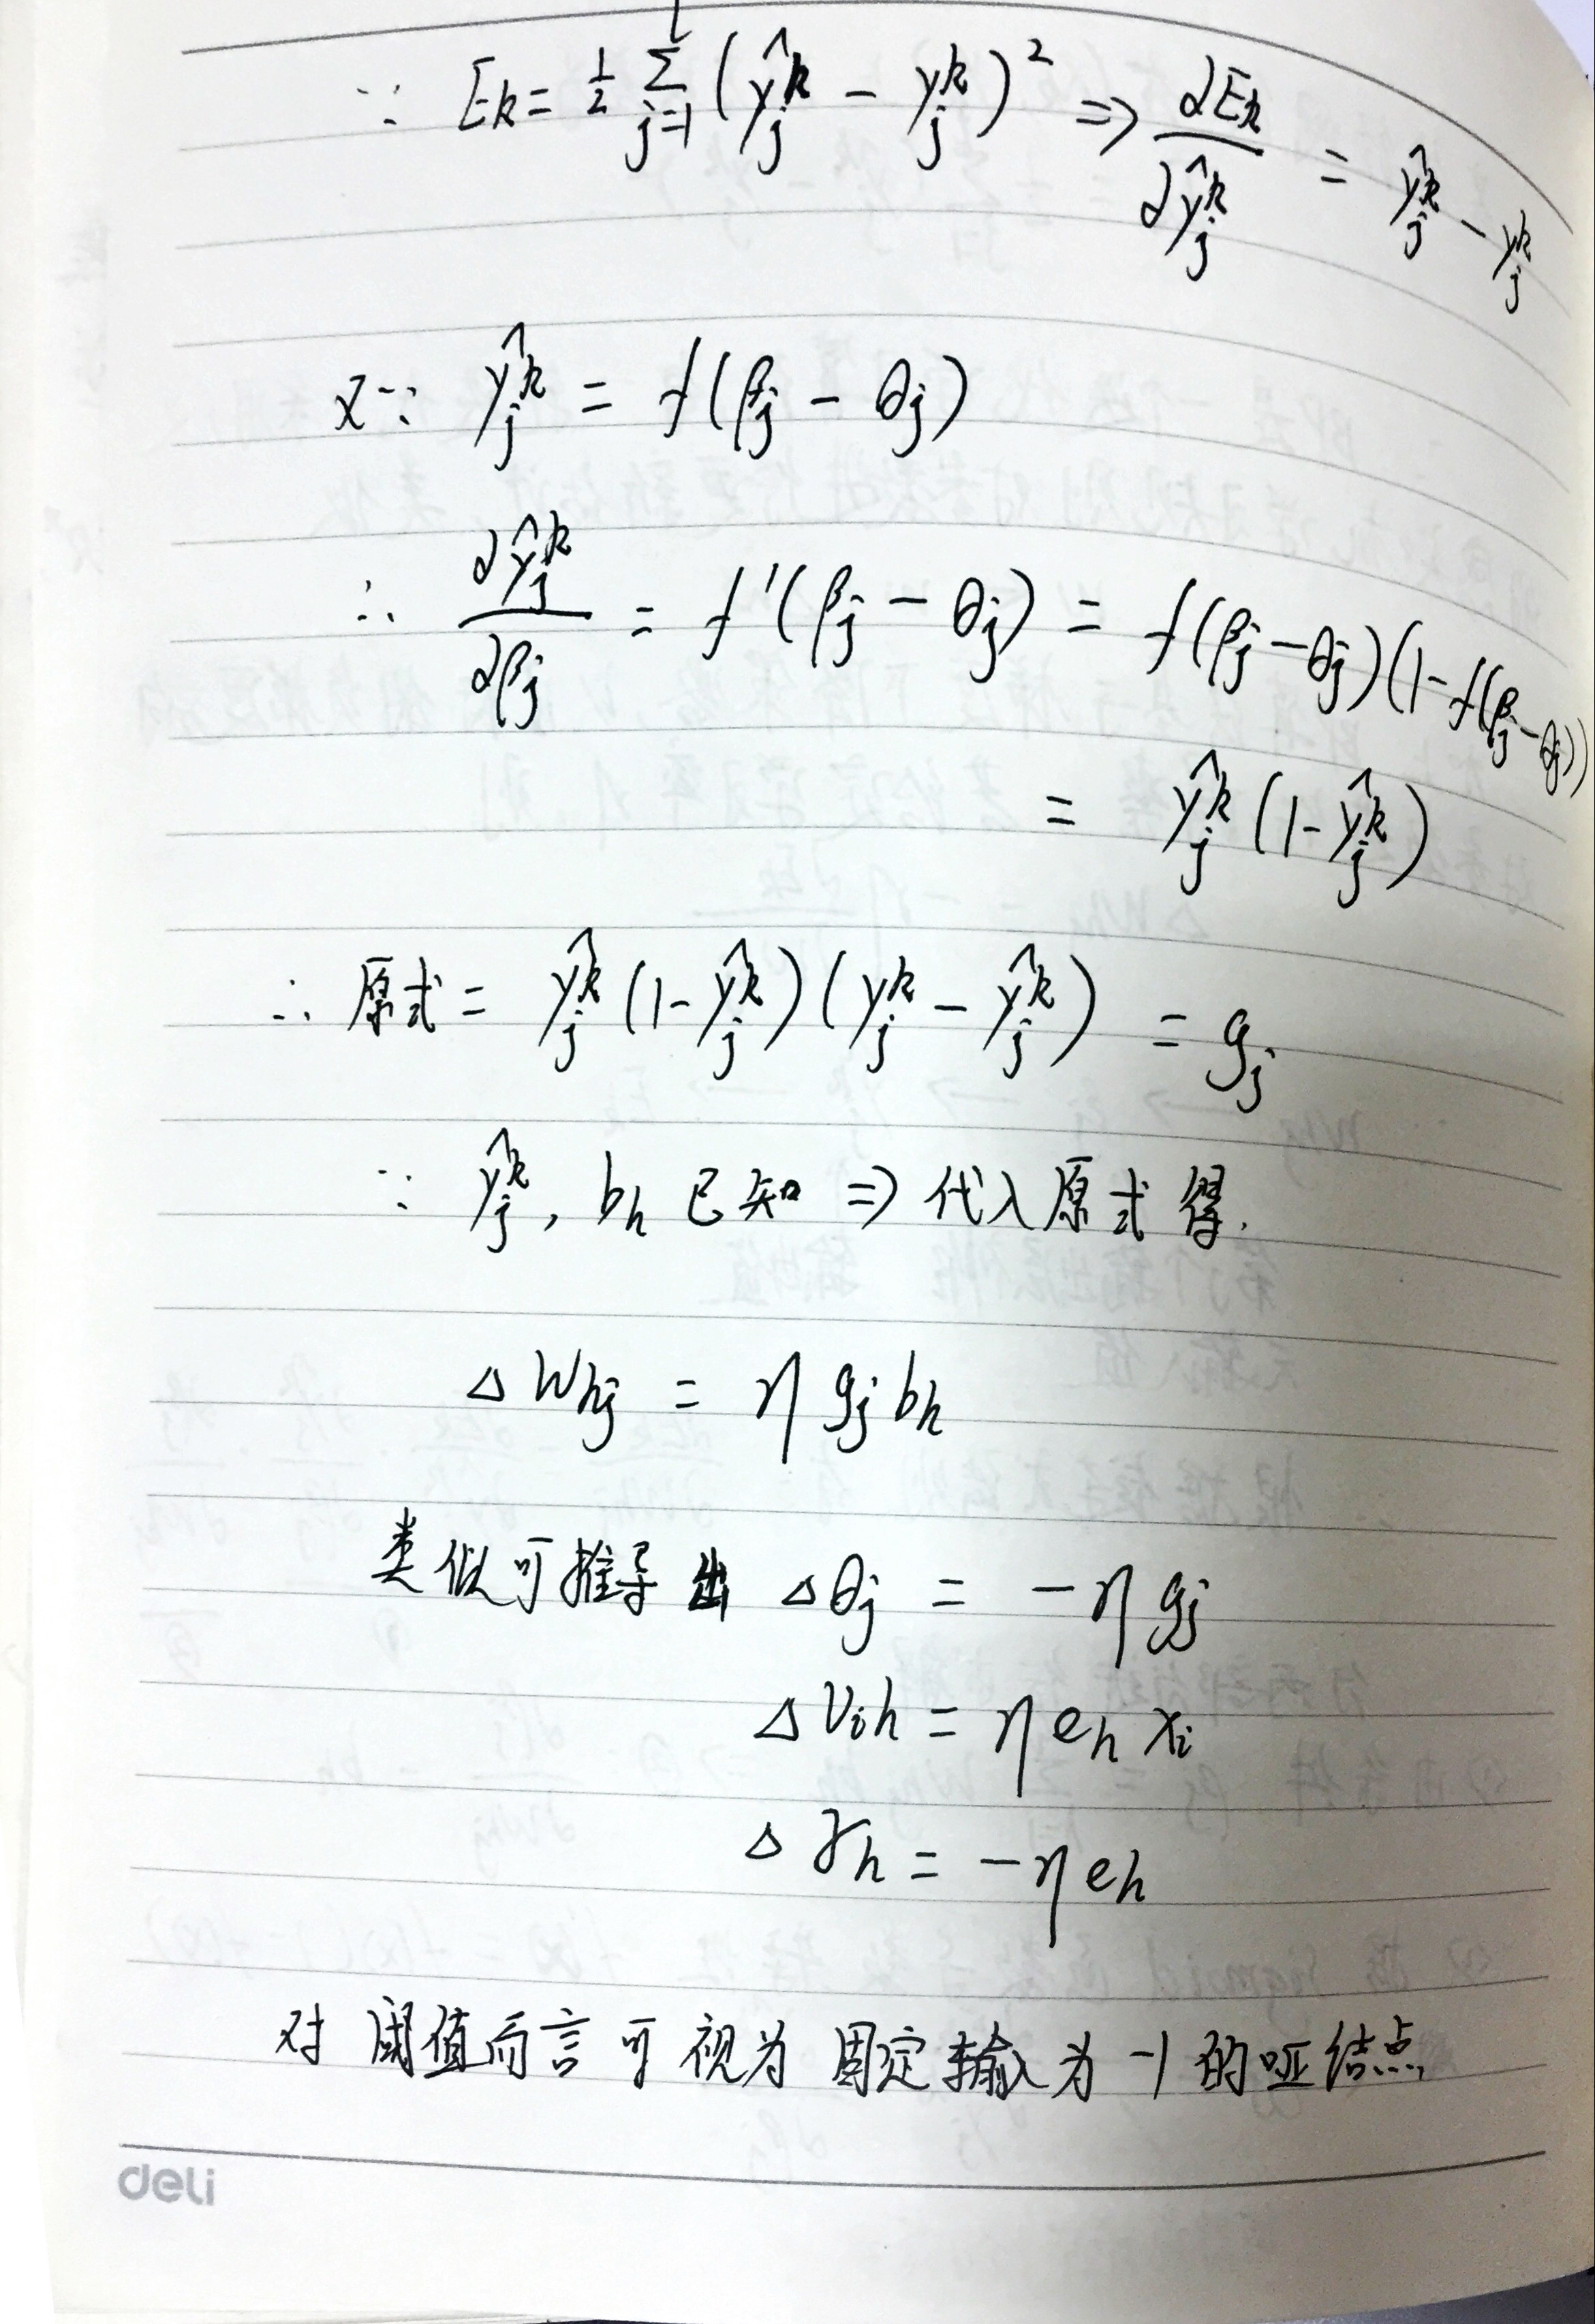 ∵ E_k = 1/2 Σ_{j=1}^{l} (ŷ_j^k − y_j^k)² ⇒ ∂E_k/∂ŷ_j^k = ŷ_j^k − y_j^k
又∵ ŷ_j^k = f(β_j − θ_j)
∴ ∂ŷ_j^k/∂β_j = f′(β_j − θ_j) = f(β_j − θ_j)(1 − f(β_j − θ_j))
= ŷ_j^k (1 − ŷ_j^k)
∴ 原式 = ŷ_j^k (1 − ŷ_j^k)(y_j^k − ŷ_j^k) = g_j
∵ ŷ_j^k, b_h 已知 ⇒ 代入原式得.
△W_hj = η g_j b_h
类似可推导出 △θ_j = −η g_j
△v_ih = η e_h x_i
△γ_h = −η e_h
对阈值而言可视为固定输入为 −1 的哑结点,
deli